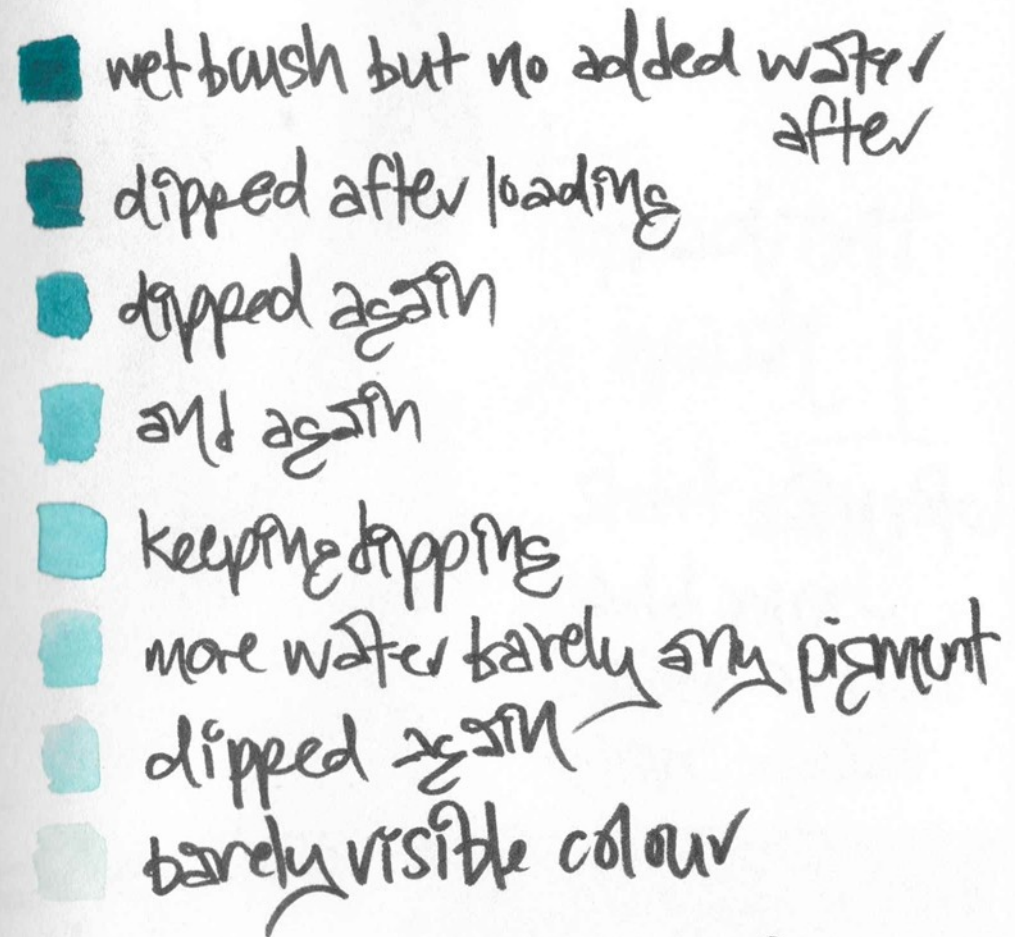 wet brush but no added water
after
dipped after loading
dipped again
and again
keeping dipping
more water barely any pigment
dipped again
barely visible colour